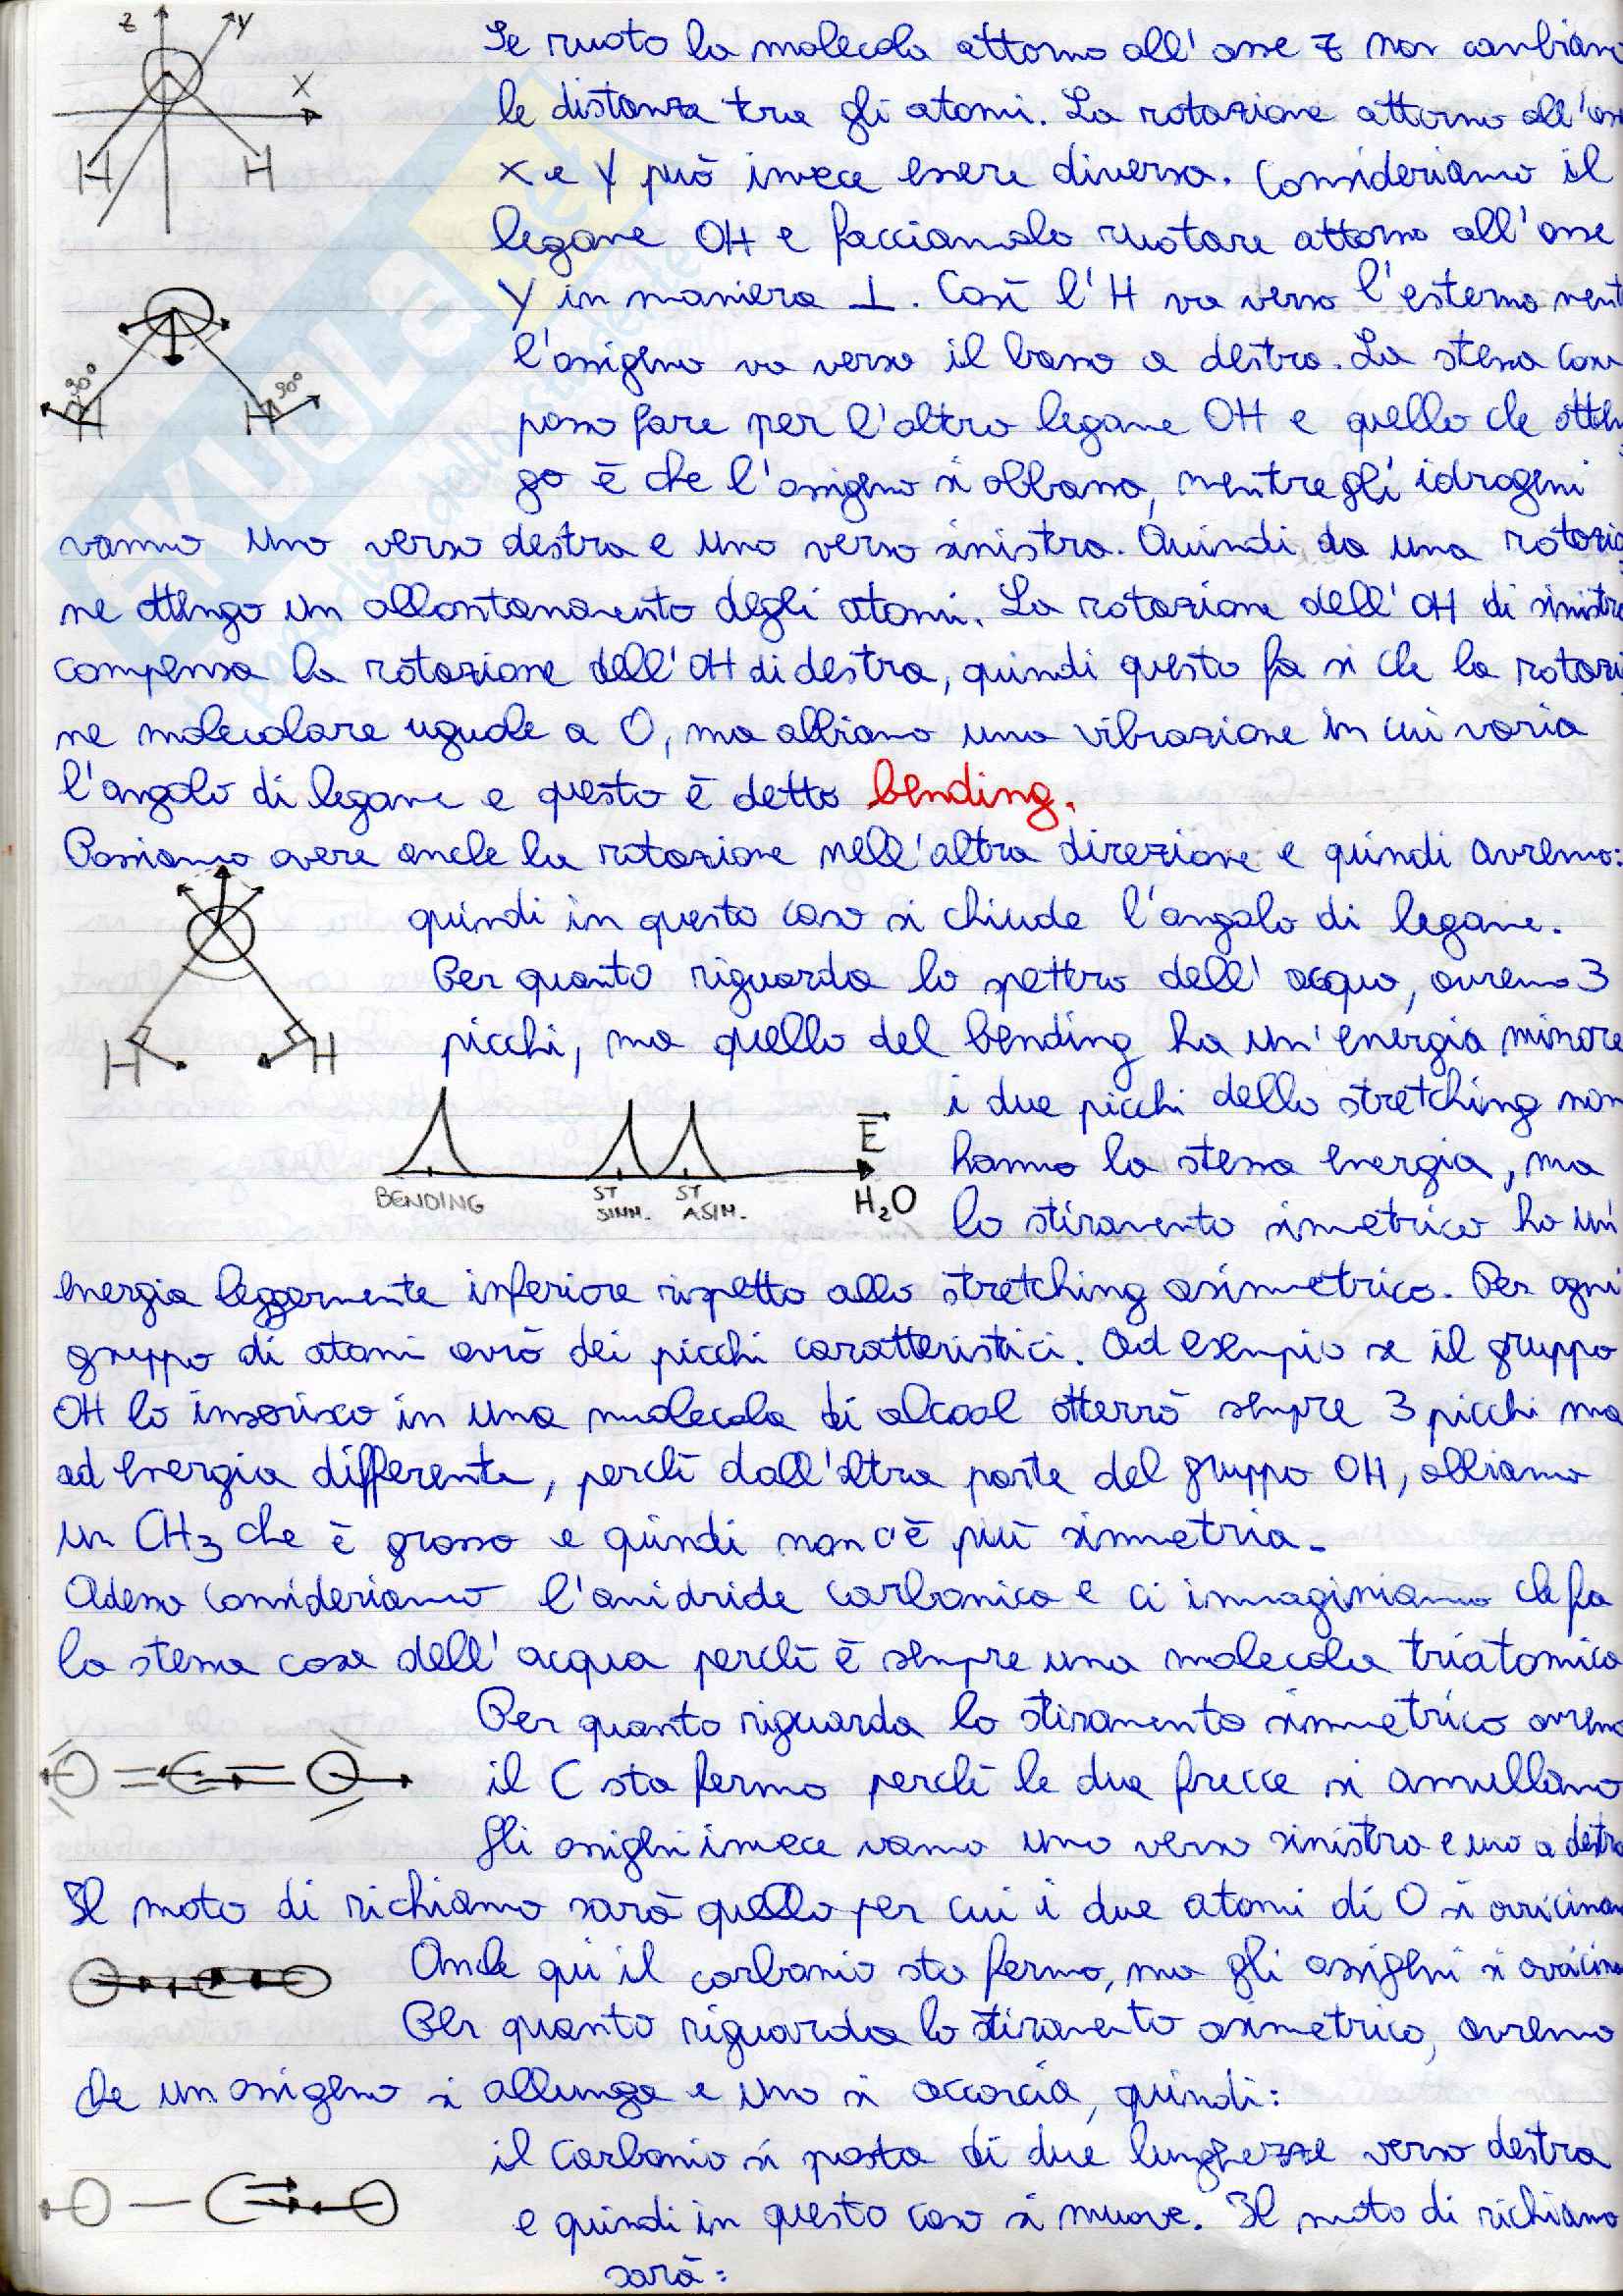 z y
Se ruoto la molecola attorno all'asse z non cambiano
x
le distanza tra gli atomi. La rotazione attorno all'asse
H H
x e y può invece essere diversa. Consideriamo il
legame OH e facciamolo ruotare attorno all'asse
y in maniera ⊥. Così l'H va verso l'esterno ment
l'ossigeno va verso il basso a destra. La stessa cosa
90° 90°
H H
posso fare per l'altro legame OH e quello che otten
go è che l'ossigeno si abbassa, mentre gli idrogeni
vanno uno verso destra e uno verso sinistra. Quindi da una rotazio
ne ottengo un allontanamento degli atomi. La rotazione dell'OH di sinistra
compensa la rotazione dell'OH di destra, quindi questo fa si che la rotazi
ne molecolare uguale a 0, ma abbiamo una vibrazione in cui varia
l'angolo di legame e questo è detto bending.
Possiamo avere anche la rotazione nell'altra direzione e quindi avremo:
quindi in questo caso si chiude l'angolo di legame.
Per quanto riguarda lo spettro dell'acqua, avremo 3
H H
picchi, ma quello del bending ha un'energia minore
i due picchi dello stretching non
E
hanno la stessa energia, ma
BENDING ST SIMM. ST ASIM. H₂O
lo stiramento simmetrico ha un'
energia leggermente inferiore rispetto allo stretching asimmetrico. Per ogni
gruppo di atomi avrò dei picchi caratteristici. Ad esempio se il gruppo
OH lo inserisco in una molecola di alcool otterrò sempre 3 picchi ma
ad energia differente, perchè dall'altra parte del gruppo OH, abbiamo
un CH₃ che è grosso e quindi non c'è più simmetria.
Adesso consideriamo l'anidride carbonica e ci immaginiamo che fa
la stessa cosa dell'acqua perchè è sempre una molecola triatomica
Per quanto riguarda lo stiramento simmetrico avremo
O = C = O
il C sta fermo perchè le due frecce si annullano
Gli ossigeni invece vanno uno verso sinistra e uno a destra
Il moto di richiamo sarà quello per cui i due atomi di O si avvicinano
O C O
Anche qui il carbonio sta fermo, ma gli ossigeni si avvicina
Per quanto riguarda lo stiramento asimetrico, avremo
che un ossigeno si allunga e uno si accorcia, quindi:
il carbonio si posta di due lunghezze verso destra
O — C O
e quindi in questo caso si muove. Il moto di richiamo
sarà: